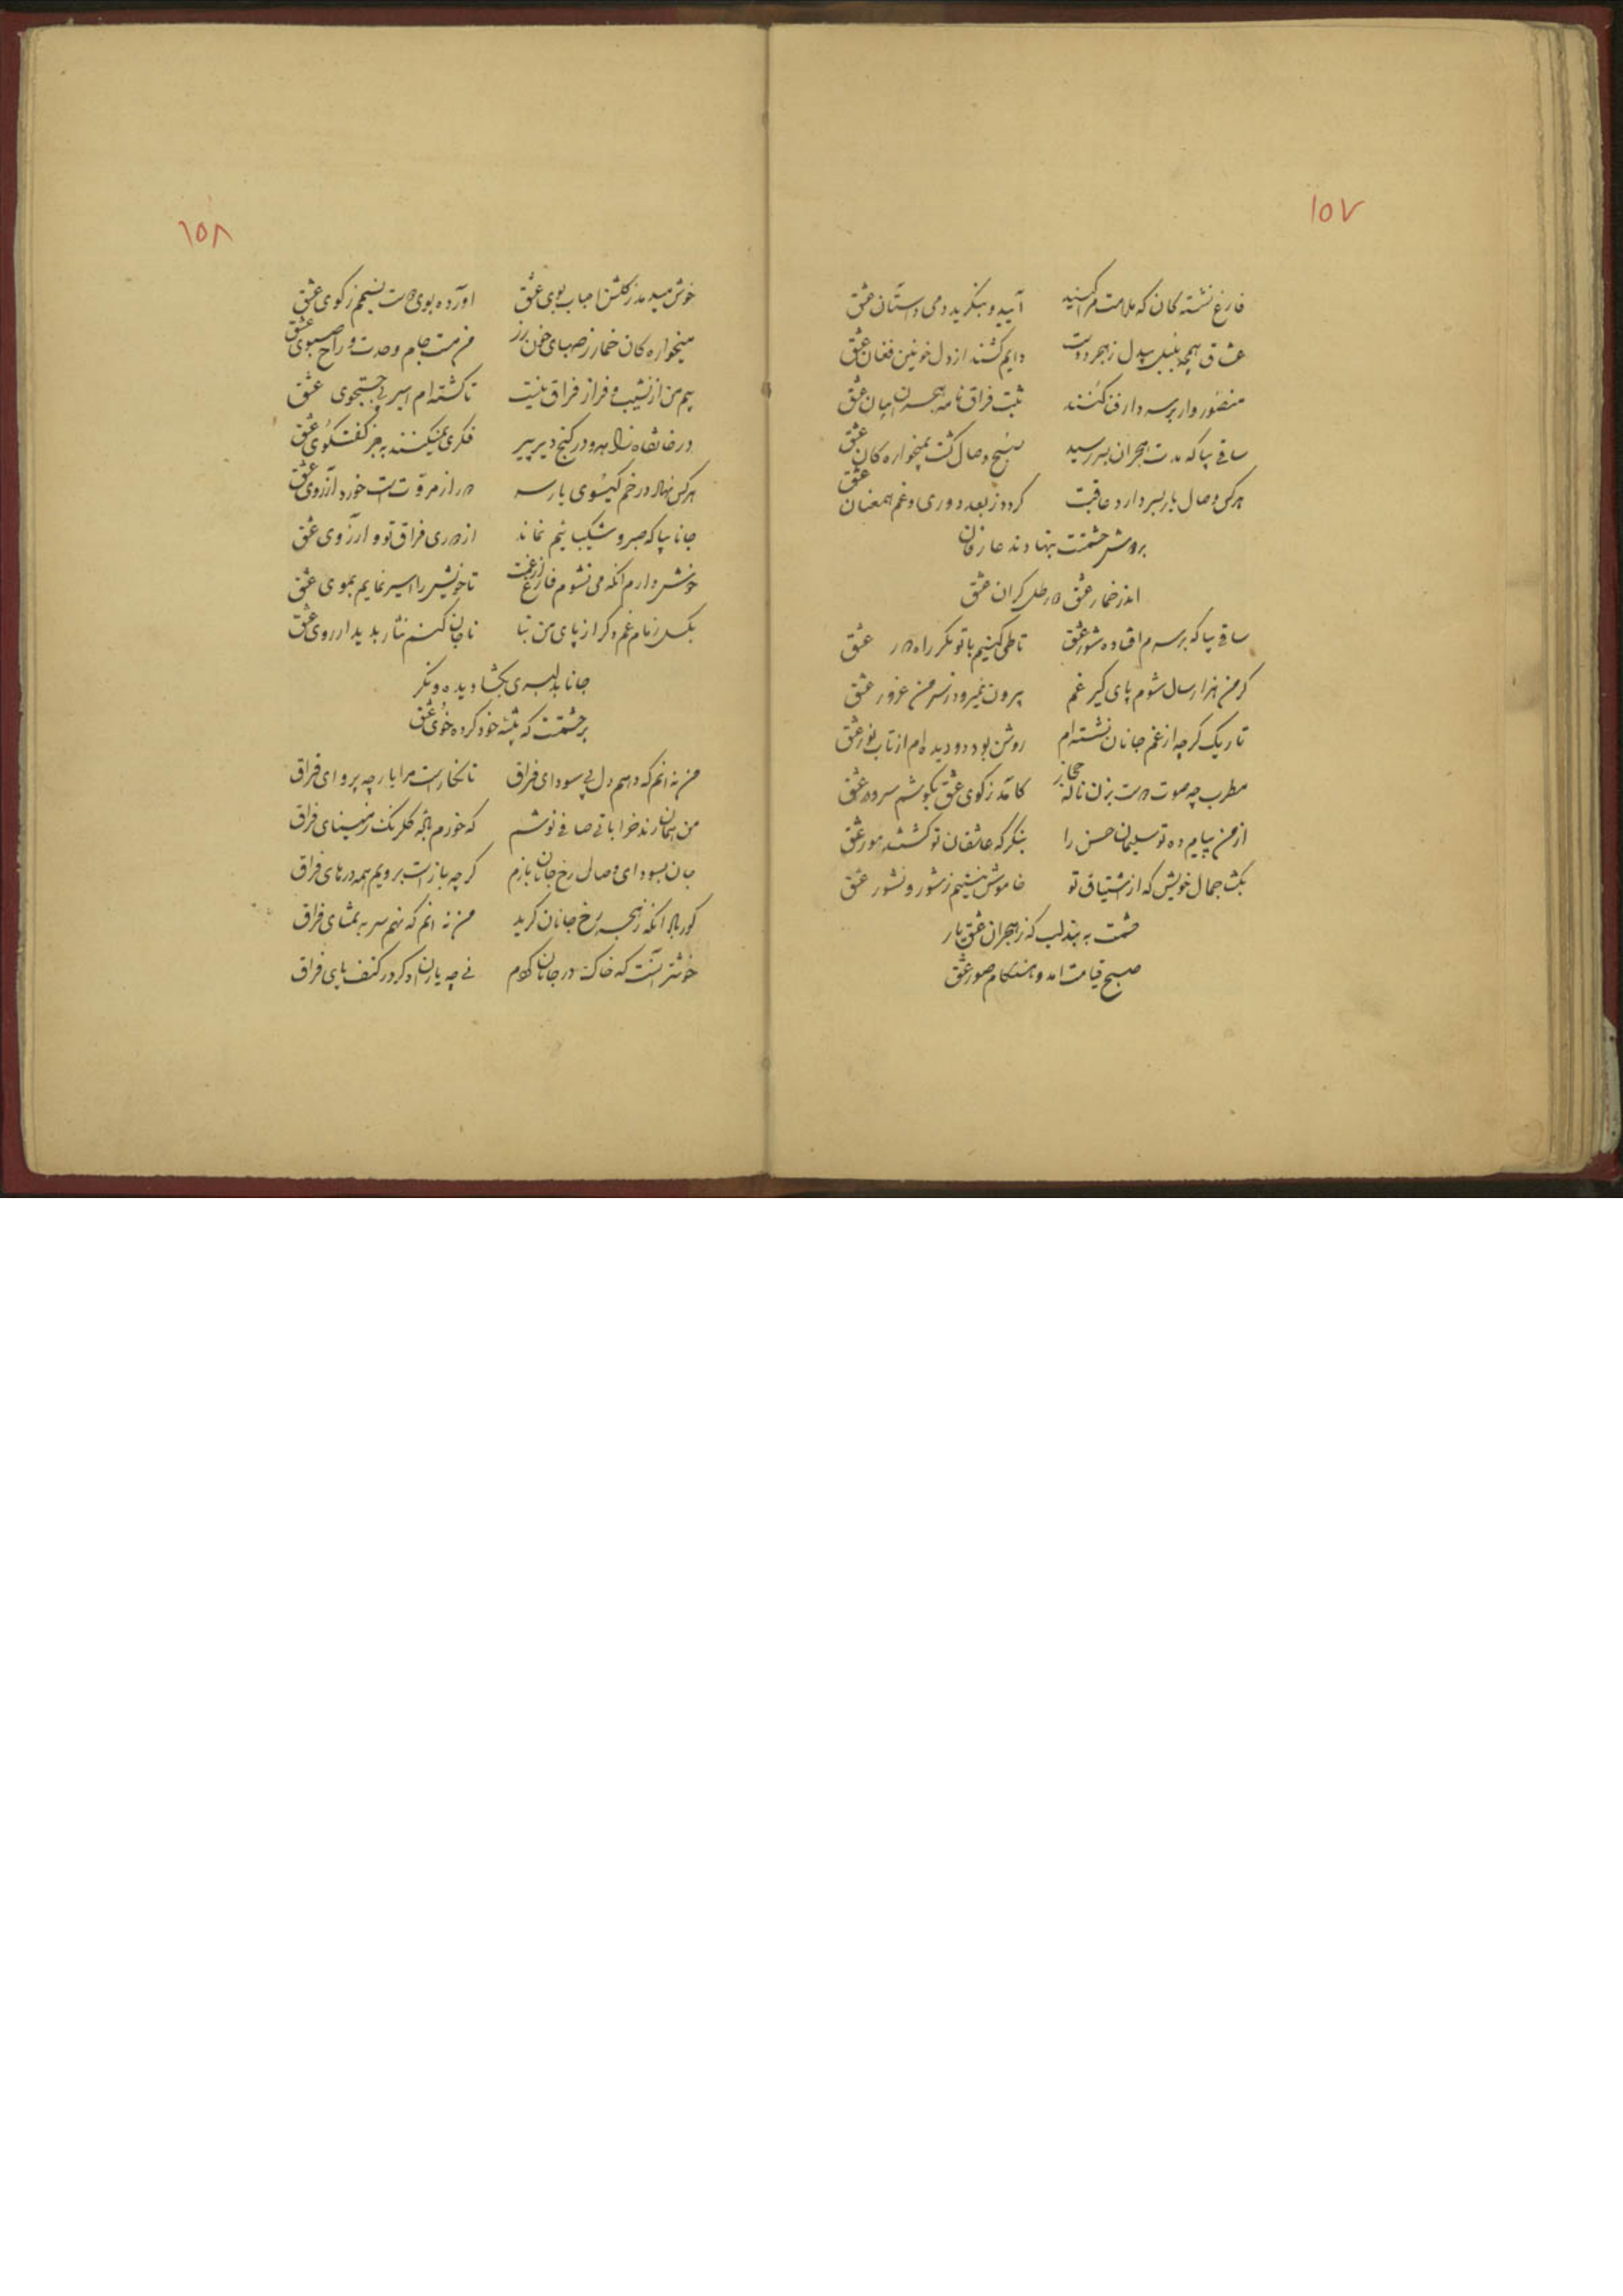 ۱۵۷
فارغ نشسته‌کان که ملامت مرا کنید آیید و بنگرید دمی داستان عشق
عشاق همچو بلبل بیدل ز هجر دوست دایم کشند از دل خونین فغان عشق
منصور وار بر سر دار فنا کنند ثبت فراق نامه هجران بیان عشق
ساقی بیا که مدت هجران بسر رسید صبح وصال کشت بمیخواره‌کان عشق
هرکس وصال یار بسر دارد عاقبت کردد ز بعد دوری و غم همعنان عشق
بر دوش حشمتت بنهادند عارفان
اندر خمار عشق رطل کران عشق
ساقی بیا که بر سرم افتاده شور عشق تا طی کنیم با تو مکر راه دور عشق
کر من هزار سال شوم پای کیر غم بیرون نمیرود ز سر من غرور عشق
تاریک کرچه از غم جانان نشسته‌ام روشن بود دو دیده‌ام از تاب نور عشق
مطرب چه صوتست بزن ناله حجاز کامد ز کوی عشق بکوشم سرود عشق
از من پیام ده تو سلیمان حسن را بنکر که عاشقان تو کشتند مور عشق
بکشا جمال خویش که از اشتیاق تو خاموش بنشینم ز شور و نشور عشق
حشمت به بند لب که ز هجران عشق یار
صبح قیامت امد و هنکام صور عشق
۱۵۸
خوش میدمد ز کلشن احباب بوی عشق اورده بوی دوست نسیمم ز کوی عشق
میخواره‌کان خمار ز صهبای خون رز من مست جام وحدت و راح سبوی عشق
بیم من از نشیب و فراز فراق نیست تا کشته‌ام اسیر پی جستجوی عشق
در خانقاه زاهد و در کنج دیر پیر فکری نمیکنند به جز کفتکوی عشق
هرکس نهاد در خم کیسوی یار سر دور از مروتست خورد آرزوی عشق
جانا بیا که صبر و شکیبائیم نماند از دوری فراق تو و ارزوی عشق
خوش دارم آنکه می نشوم فارغ از غمت تا خویش را اسیر نمایم بموی عشق
بکسل زمام غم دکر از پای من بیا تا جان کنم نثار بدیدار روی عشق
جانا بدلبری بکشا دیده و نکر
بر حشمتت که پیشه خود کرده خوی عشق
من نه انم که دهم دل پی سودای فراق تا نکارست مرا یار چه پروای فراق
من همان رند خراباتی صافی نوشم که خورم باده کلرنک ز مینای فراق
جان بسودای وصال رخ جانان بازم کرچه بازست برویم همه درهای فراق
کور باد انکه ز هجر رخ جانان کرید من نه انم که نهم سر به تمنای فراق
خوشتر آنست که خاک در جانان کردم نی چه یاران دکر در کنف پای فراق